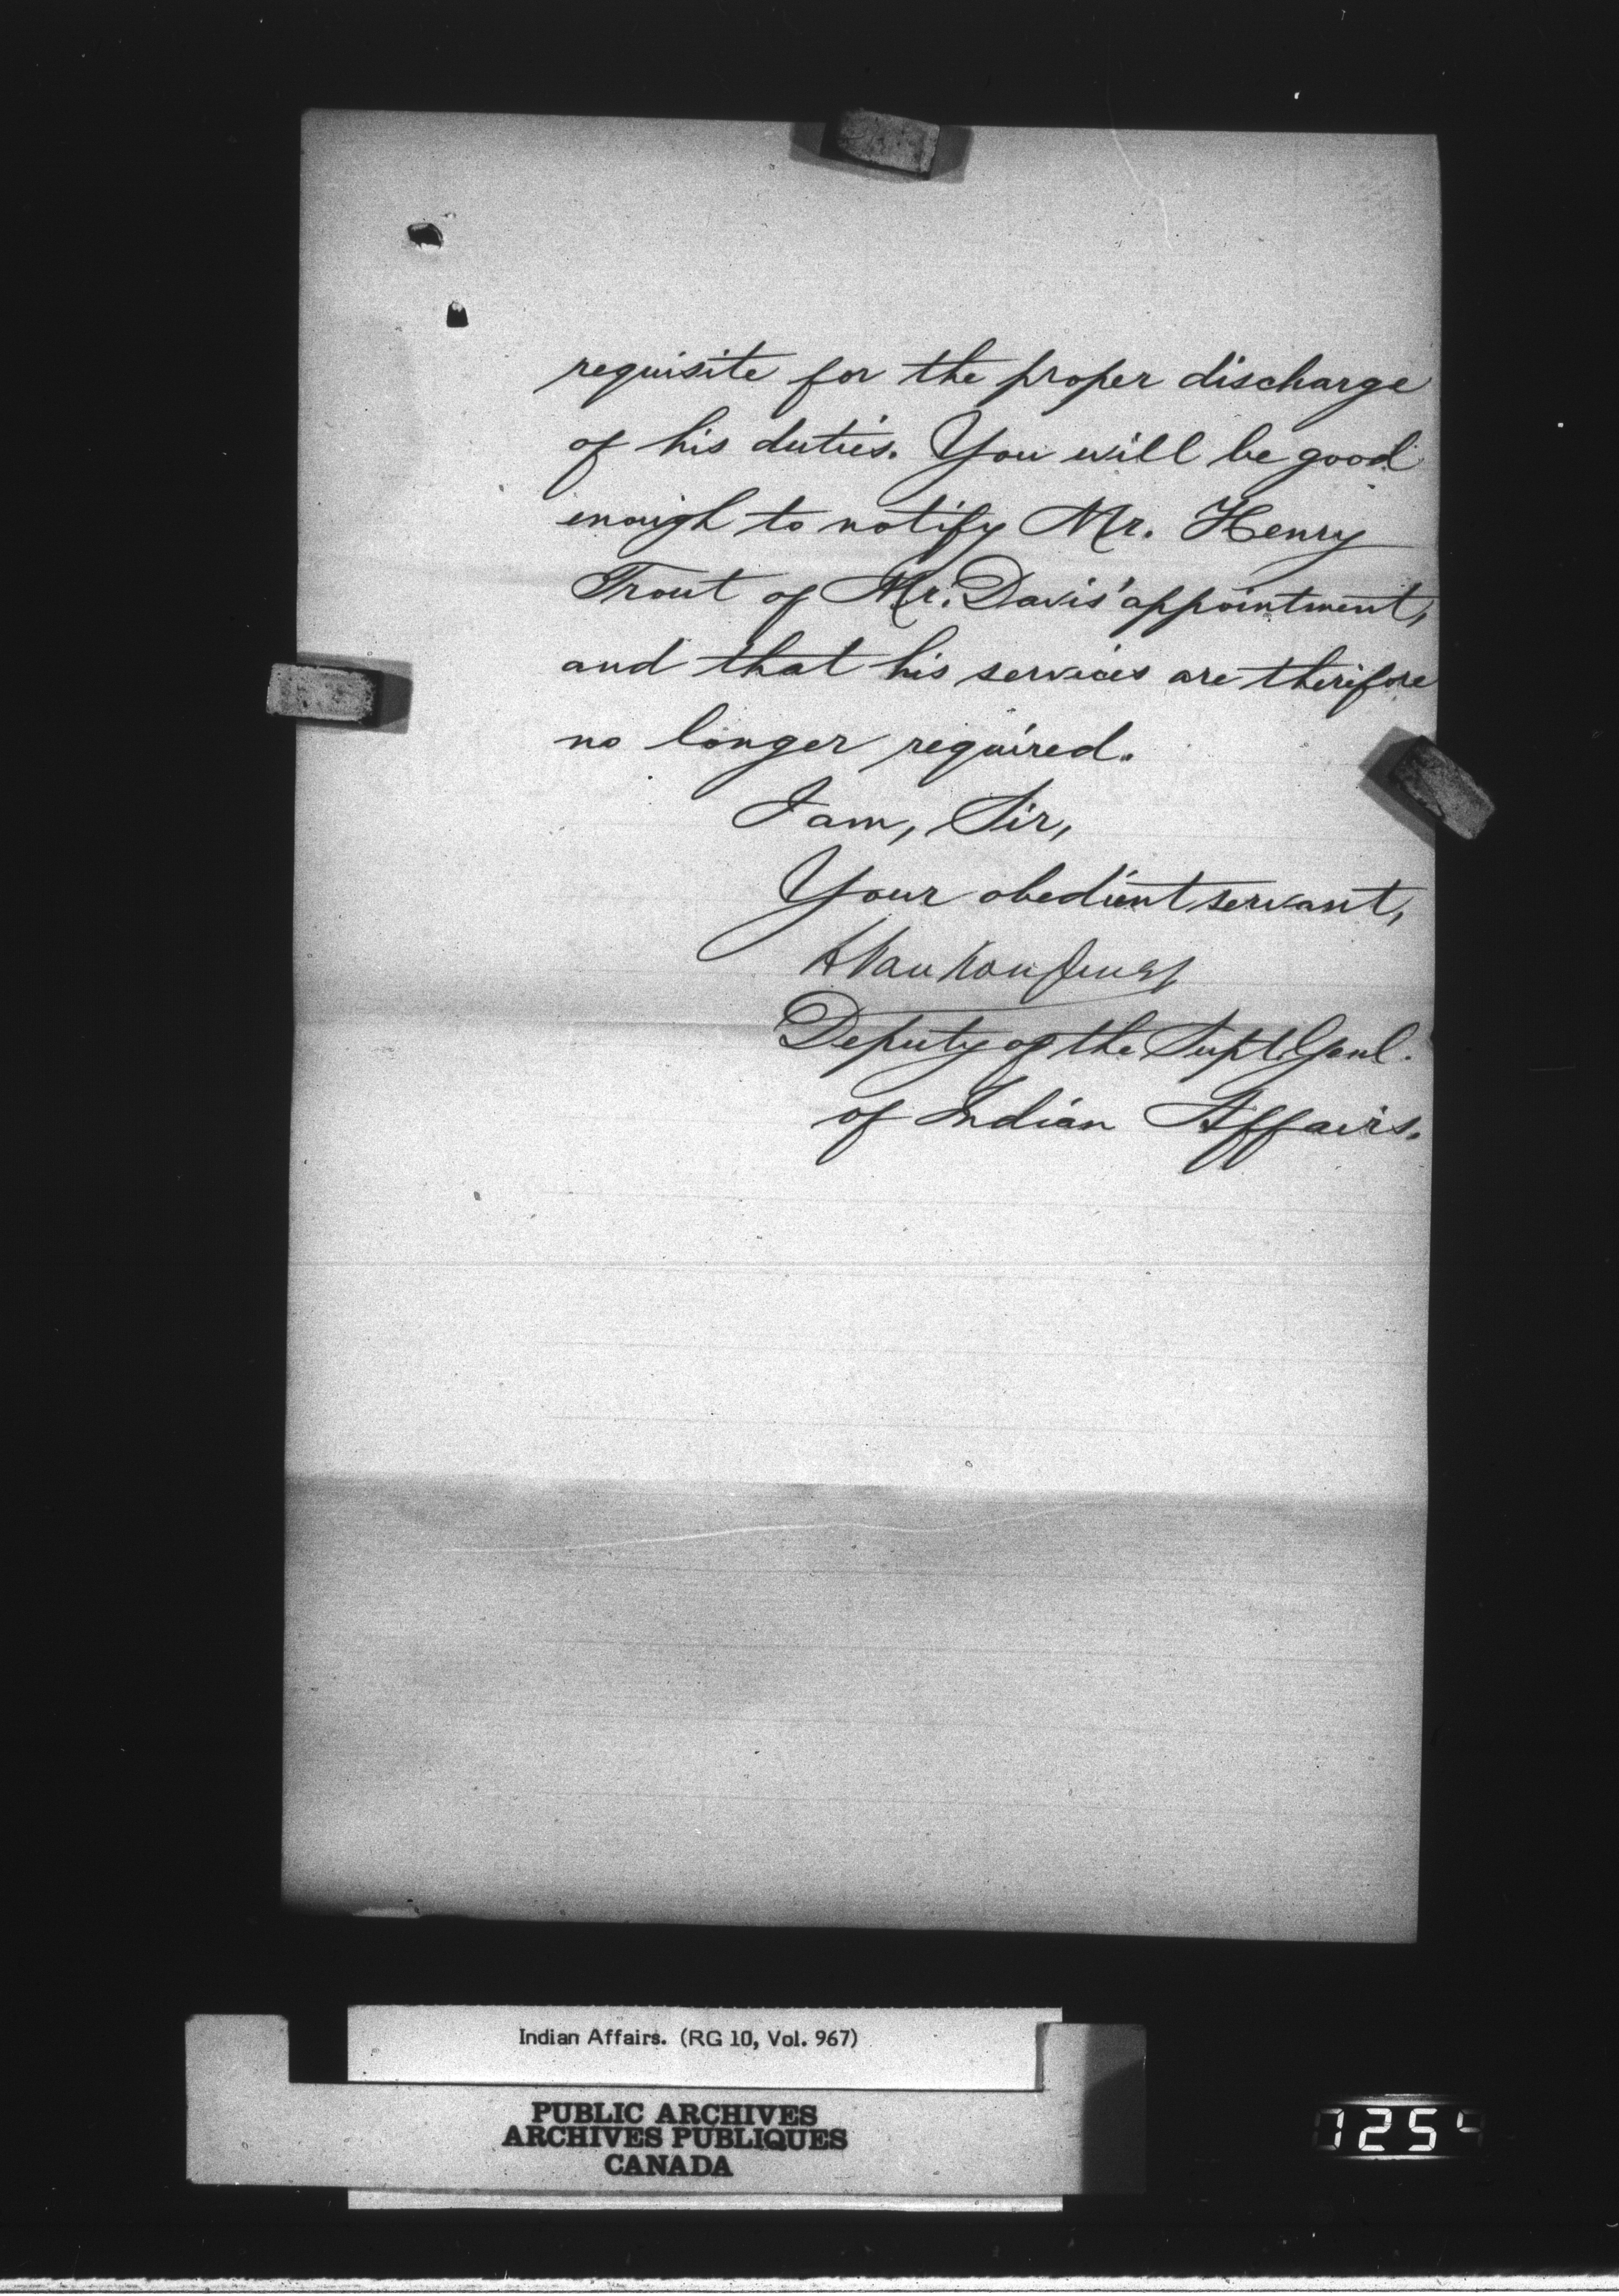 requisite for the proper discharge
of his duties. You will be good
enough to notify Mr. Henry
Trout of Mr. Davis' appointment,
and that his services are therefore
no longer required.
I am, Sir,
Your obedient servant,
Deputy of the Supt. Genl.
of Indian Affairs.
Indian Affairs. (RG 10, Vol. 967)
PUBLIC ARCHIVES
ARCHIVES PUBLIQUES
CANADA